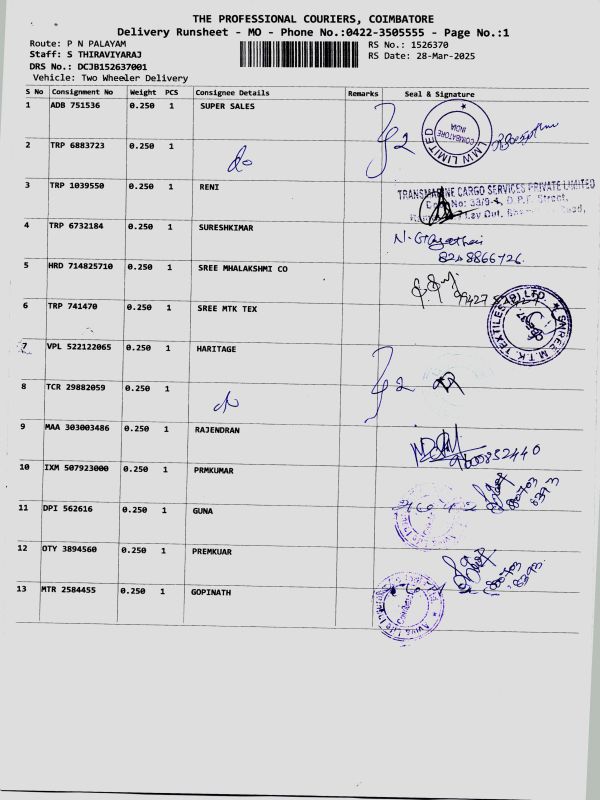 THE PROFESSIONAL COURIERS, COIMBATORE
Delivery Runsheet - MO - Phone No.:0422-3505555 - Page No.:1
Route: P N PALAYAM RS No.: 1526370
Staff: S THIRAVIYARAJ RS Date: 28-Mar-2025
DRS No.: DCJB152637001
Vehicle: Two Wheeler Delivery
S No Consignment No Weight PCS Consignee Details Remarks Seal & Signature
1 ADB 751536 0.250 1 SUPER SALES 2 LMW LIMITED COIMBATORE INDIA
2 TRP 6883723 0.250 1 do
3 TRP 1039550 0.250 1 RENI TRANSMARINE CARGO SERVICES PRIVATE LIMITED
No: 33/9-1, D.P.F. Street,
4 TRP 6732184 0.250 1 SURESHKIMAR
8248866726
5 HRD 714825710 0.250 1 SREE MHALAKSHMI CO
6 TRP 741470 0.250 1 SREE MTK TEX SHREE M.T.K. TEXTILES (P) LTD
7 VPL 522122065 0.250 1 HARITAGE 2
8 TCR 29882059 0.250 1 do
9 MAA 303003486 0.250 1 RAJENDRAN
9600852440
10 IXM 507923000 0.250 1 PRMKUMAR
11 DPI 562616 0.250 1 GUNA
12 OTY 3894560 0.250 1 PREMKUAR
13 MTR 2584455 0.250 1 GOPINATH